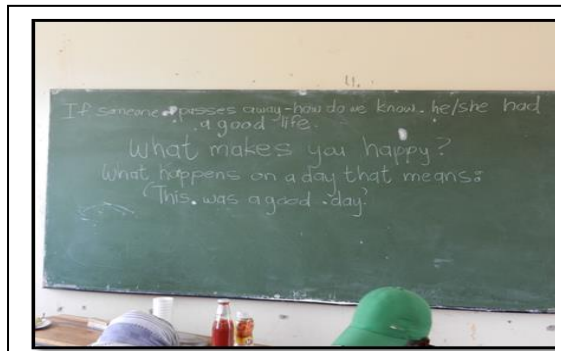 If someone passes away-how do we know he/she had
a good life.
What makes you happy?
What happens on a day that means:
(This was a good day?